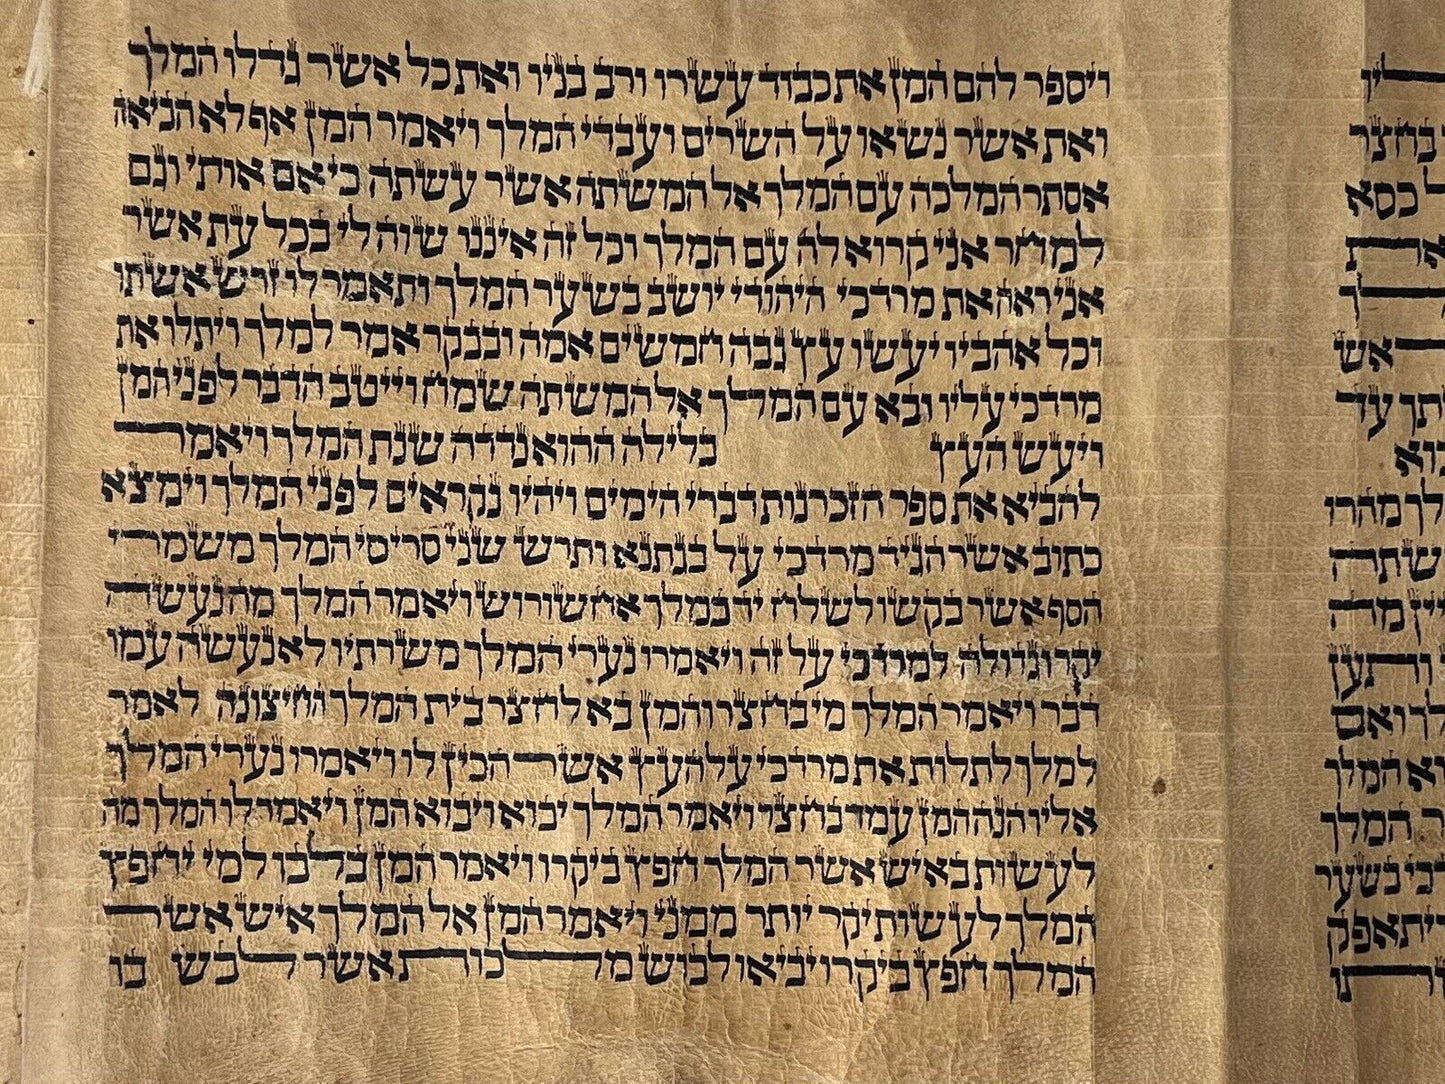 ויספר להם המן את כבוד עשרו ורב בניו ואת כל אשר גדלו המלך
ואת אשר נשאו על השרים ועבדי המלך ויאמר המן אף לא הביאה
אסתר המלכה עם המלך אל המשתה אשר עשתה כי אם אותי וגם
למחר אני קרוא לה עם המלך וכל זה איננו שוה לי בכל עת אשר
אני ראה את מרדכי היהודי יושב בשער המלך ותאמר לו זרש אשתו
וכל אהביו יעשו עץ גבה חמשים אמה ובבקר אמר למלך ויתלו את
מרדכי עליו ובא עם המלך אל המשתה שמח וייטב הדבר לפני המן
ויעש העץ בלילה ההוא נדדה שנת המלך ויאמר
להביא את ספר הזכרנות דברי הימים ויהיו נקראים לפני המלך וימצא
כתוב אשר הגיד מרדכי על בגתנא ותרש שני סריסי המלך משמרי
הסף אשר בקשו לשלח יד במלך אחשורוש ויאמר המלך מה נעשה
יקר וגדולה למרדכי על זה ויאמרו נערי המלך משרתיו לא נעשה עמו
דבר ויאמר המלך מי בחצר והמן בא לחצר בית המלך החיצונה לאמר
למלך לתלות את מרדכי על העץ אשר הכין לו ויאמרו נערי המלך
אליו הנה המן עמד בחצר ויאמר המלך יבוא ויבוא המן ויאמר לו המלך מה
לעשות באיש אשר המלך חפץ ביקרו ויאמר המן בלבו למי יחפץ
המלך לעשות יקר יותר ממני ויאמר המן אל המלך איש אשר
המלך חפץ ביקרו יביאו לבוש מלכות אשר לבש בו
ליו
בחצר
ל כסא
ארת
ך
אש
תך עד
בוא
לך מהרו
שתה
יין מה
ותען
לך ואם
וא המלך
ר המלך
דכי בשער
ויתאפק
תו